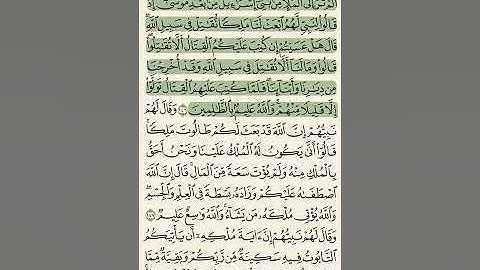 أَلَمْ تَرَ إِلَى ٱلْمَلَإِ مِنۢ بَنِىٓ إِسْرَٰٓءِيلَ مِنۢ بَعْدِ مُوسَىٰٓ إِذْ
قَالُوا۟ لِنَبِىٍّ لَّهُمُ ٱبْعَثْ لَنَا مَلِكًا نُّقَٰتِلْ فِى سَبِيلِ ٱللَّهِ ۖ
قَالَ هَلْ عَسَيْتُمْ إِن كُتِبَ عَلَيْكُمُ ٱلْقِتَالُ أَلَّا تُقَٰتِلُوا۟ ۖ
قَالُوا۟ وَمَا لَنَآ أَلَّا نُقَٰتِلَ فِى سَبِيلِ ٱللَّهِ وَقَدْ أُخْرِجْنَا
مِن دِيَٰرِنَا وَأَبْنَآئِنَا ۖ فَلَمَّا كُتِبَ عَلَيْهِمُ ٱلْقِتَالُ تَوَلَّوْا۟
إِلَّا قَلِيلًا مِّنْهُمْ ۗ وَٱللَّهُ عَلِيمٌۢ بِٱلظَّٰلِمِينَ ٢٤٦ وَقَالَ لَهُمْ
نَبِيُّهُمْ إِنَّ ٱللَّهَ قَدْ بَعَثَ لَكُمْ طَالُوتَ مَلِكًا ۚ
قَالُوٓا۟ أَنَّىٰ يَكُونُ لَهُ ٱلْمُلْكُ عَلَيْنَا وَنَحْنُ أَحَقُّ
بِٱلْمُلْكِ مِنْهُ وَلَمْ يُؤْتَ سَعَةً مِّنَ ٱلْمَالِ ۚ قَالَ إِنَّ ٱللَّهَ
ٱصْطَفَىٰهُ عَلَيْكُمْ وَزَادَهُۥ بَسْطَةً فِى ٱلْعِلْمِ وَٱلْجِسْمِ ۖ
وَٱللَّهُ يُؤْتِى مُلْكَهُۥ مَن يَشَآءُ ۚ وَٱللَّهُ وَٰسِعٌ عَلِيمٌ ٢٤٧
وَقَالَ لَهُمْ نَبِيُّهُمْ إِنَّ ءَايَةَ مُلْكِهِۦٓ أَن يَأْتِيَكُمُ
ٱلتَّابُوتُ فِيهِ سَكِينَةٌ مِّن رَّبِّكُمْ وَبَقِيَّةٌ مِّمَّا